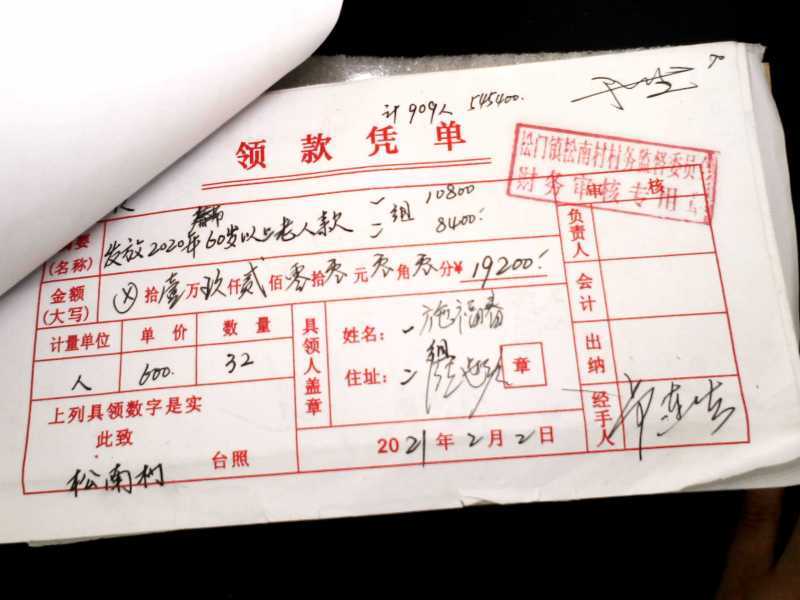 计909人 545400.
领款凭单
松门镇松南村村务监督委员
财务审核专用
审核
要
(名称)
春节
发放2020年60岁以上老人款
一组 10800
二 8400.
负责人
金额
(大写)
⊗拾壹万玖仟贰佰零拾零元零角零分¥ 19200.
会计
计量单位 单价 数量
人 600. 32
具领人盖章
姓名: 一施福春
住址: 二组
章
出纳
上列具领数字是实
此致
台照
松南村
2021年2月2日
经手人